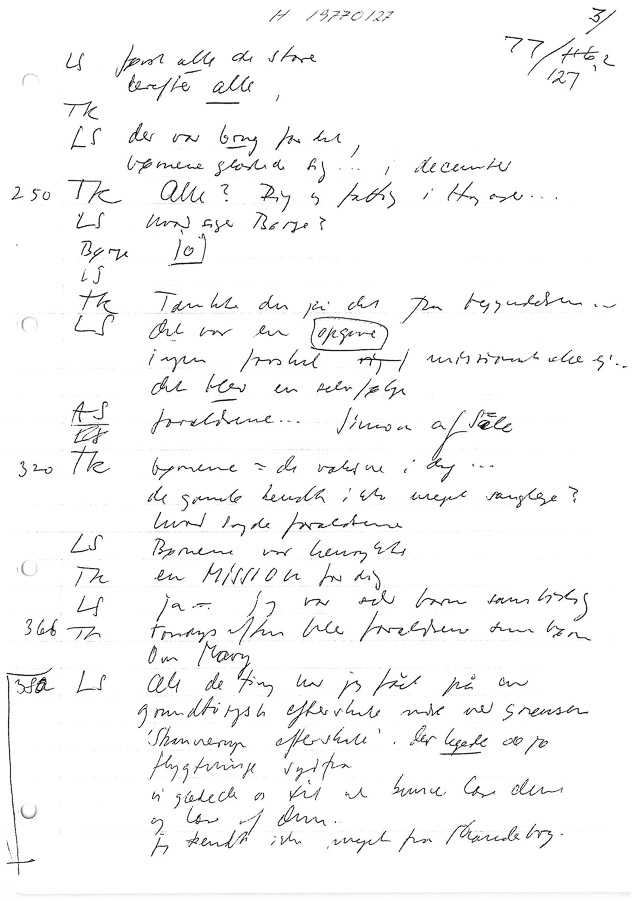 H 19770127
3/
77/
127
LS først alle de store
derefter alle,
TK
LS der var brug for det,
børnene glædede sig ... i december
250 TK Alle? Rig og fattig i
LS hvad siger Børge?
Børge jo
LS
TK Tænkte du på det fra begyndelsen...
LS det var en opgave
ingen forskel
det blev en selvfølge
AS forældrene... Simon af Sæle
320 TK børnene = de voksne i dag ...
de gamle kendte ikke meget sanglege?
hvad sagde forældrene
LS Børnene var henrykte
TK en MISSION for dig
LS ja = jeg var selv barn samtidig
366 TK aften blev forældrene som børn
Om Mary
380 LS Alle de ting har jeg fået på en
grundtvigsk efterskole nede ved grænsen
efterskole'. der legede 60 70
flygtninge sydfra
vi glædede os til at kunne lære dem
og lære af dem.
jeg kendte ikke meget fra Skanderborg.